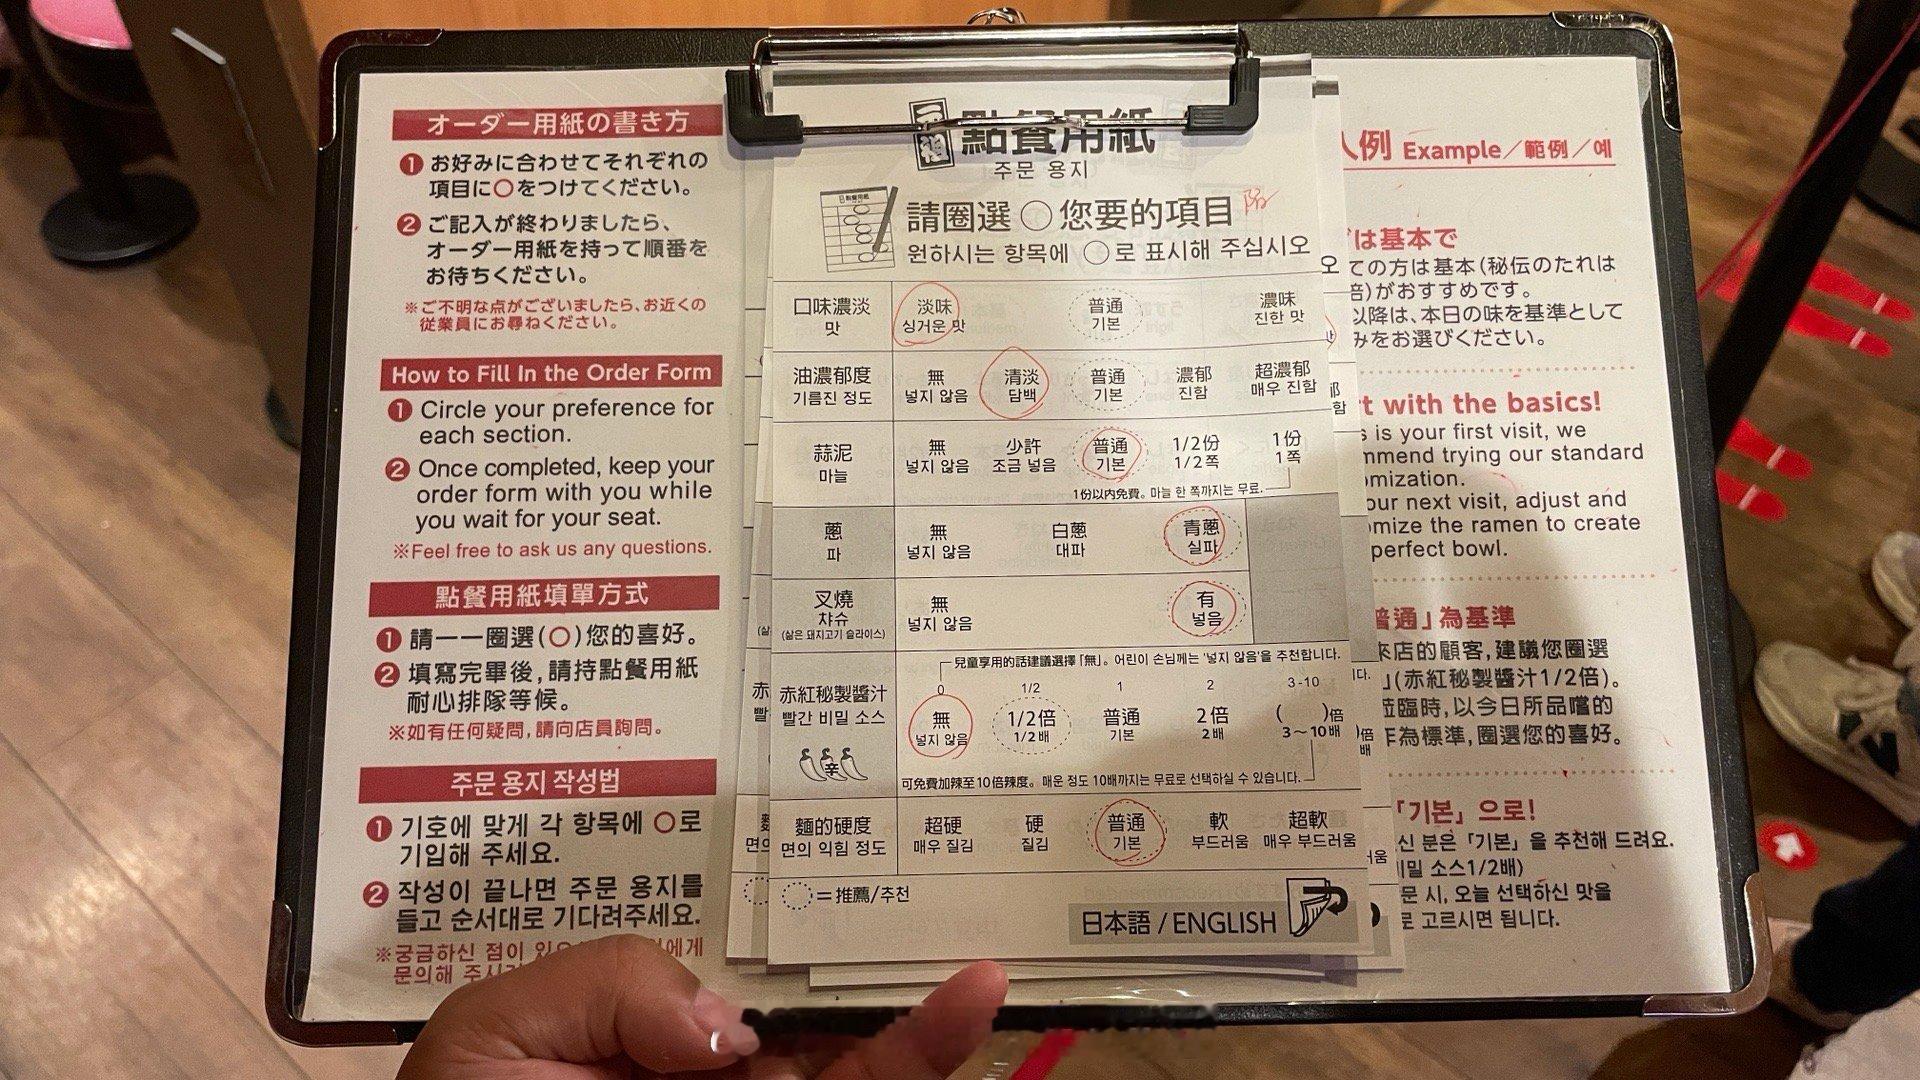 オーダー用紙の書き方
1 お好みに合わせてそれぞれの
項目に○をつけてください。
2 ご記入が終わりましたら、
オーダー用紙を持って順番を
お待ちください。
※ご不明な点がございましたら、お近くの
従業員にお尋ねください。
How to Fill In the Order Form
1 Circle your preference for
each section.
2 Once completed, keep your
order form with you while
you wait for your seat.
※Feel free to ask us any questions.
點餐用紙填單方式
1 請一一圈選(○)您的喜好。
2 填寫完畢後,請持點餐用紙
耐心排隊等候。
※如有任何疑問,請向店員詢問。
주문 용지 작성법
1 기호에 맞게 각 항목에 ○로
기입해 주세요.
2 작성이 끝나면 주문 용지를
들고 순서대로 기다려주세요.
※궁금하신 점이 있으
에게
문의해 주시
點餐用紙
주문 용지
請圈選 ○ 您要的項目
원하시는 항목에 ○로 표시해 주십시오
口味濃淡 淡味 普通 濃味
맛 싱거운 맛 기본 진한 맛
油濃郁度 無 清淡 普通 濃郁 超濃郁
기름진 정도 넣지 않음 담백 기본 진함 매우 진함
蒜泥 無 少許 普通 1/2份 1份
마늘 넣지 않음 조금 넣음 기본 1/2쪽 1쪽
1份以内免費。마늘 한 쪽까지는 무료.
蔥 無 白蔥 青蔥
파 넣지 않음 대파 실파
叉燒 無 有
챠슈 넣지 않음 넣음
(삶은 돼지고기 슬라이스)
兒童享用的話建議選擇「無」。어린이 손님께는 '넣지 않음'을 추천합니다.
0 1/2 1 2 3-10
赤紅秘製醬汁 無 1/2倍 普通 2倍 ( )倍
빨간 비밀 소스 넣지 않음 1/2배 기본 2배 3～10배
辛
可免費加辣至10倍辣度。매운 정도 10배까지는 무료로 선택하실 수 있습니다.
麵的硬度 超硬 硬 普通 軟 超軟
면의 익힘 정도 매우 질김 질김 기본 부드러움 매우 부드러움
○=推薦/추천
日本語 / ENGLISH
入例 Example／範例／예
は基本で
ての方は基本(秘伝のたれは
倍)がおすすめです。
以降は、本日の味を基準として
みをお選びください。
t with the basics!
s is your first visit, we
mmend trying our standard
omization.
our next visit, adjust and
omize the ramen to create
perfect bowl.
普通」為基準
來店的顧客,建議您圈選
」(赤紅秘製醬汁1/2倍)。
蒞臨時,以今日所品嚐的
作為標準,圈選您的喜好。
「기본」으로!
신 분은「기본」을 추천해 드려요.
비밀 소스1/2배)
문 시, 오늘 선택하신 맛을
로 고르시면 됩니다.